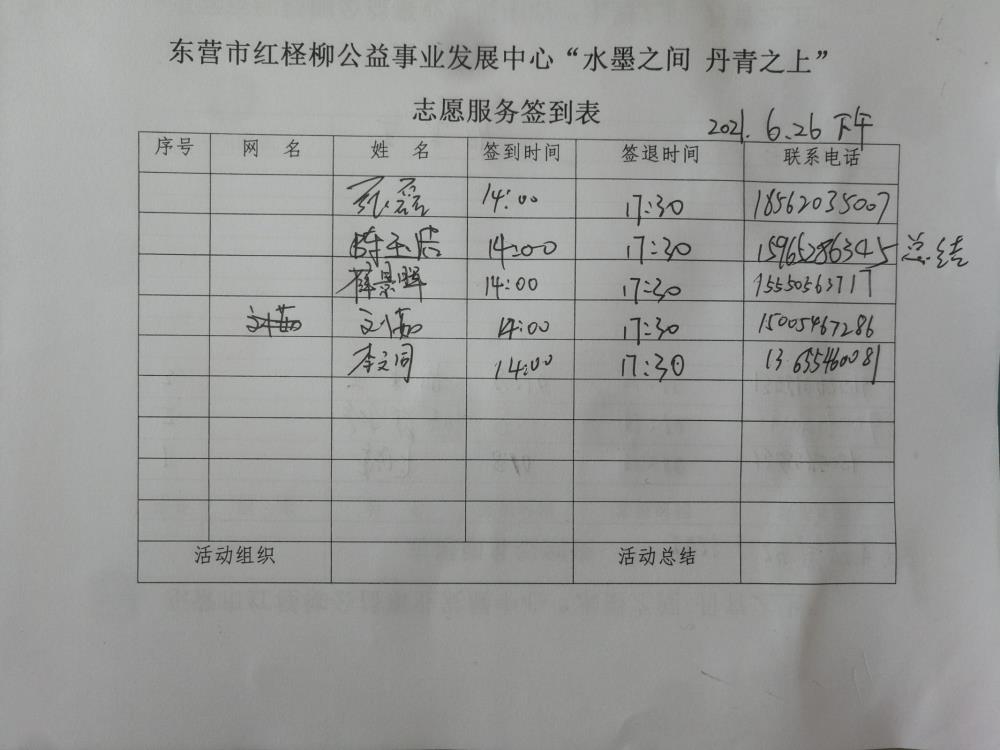 东营市红柽柳公益事业发展中心“水墨之间 丹青之上”
志愿服务签到表
2021.6.26 下午
序号 网 名 姓 名 签到时间 签退时间 联系电话
14:00 17:30 18562035007
14:00 17:30 15965286345 总结
14:00 17:30 15550563717
刘茹 14:00 17:30 15005467286
李文同 14:00 17:30 13655460081
活动组织 活动总结